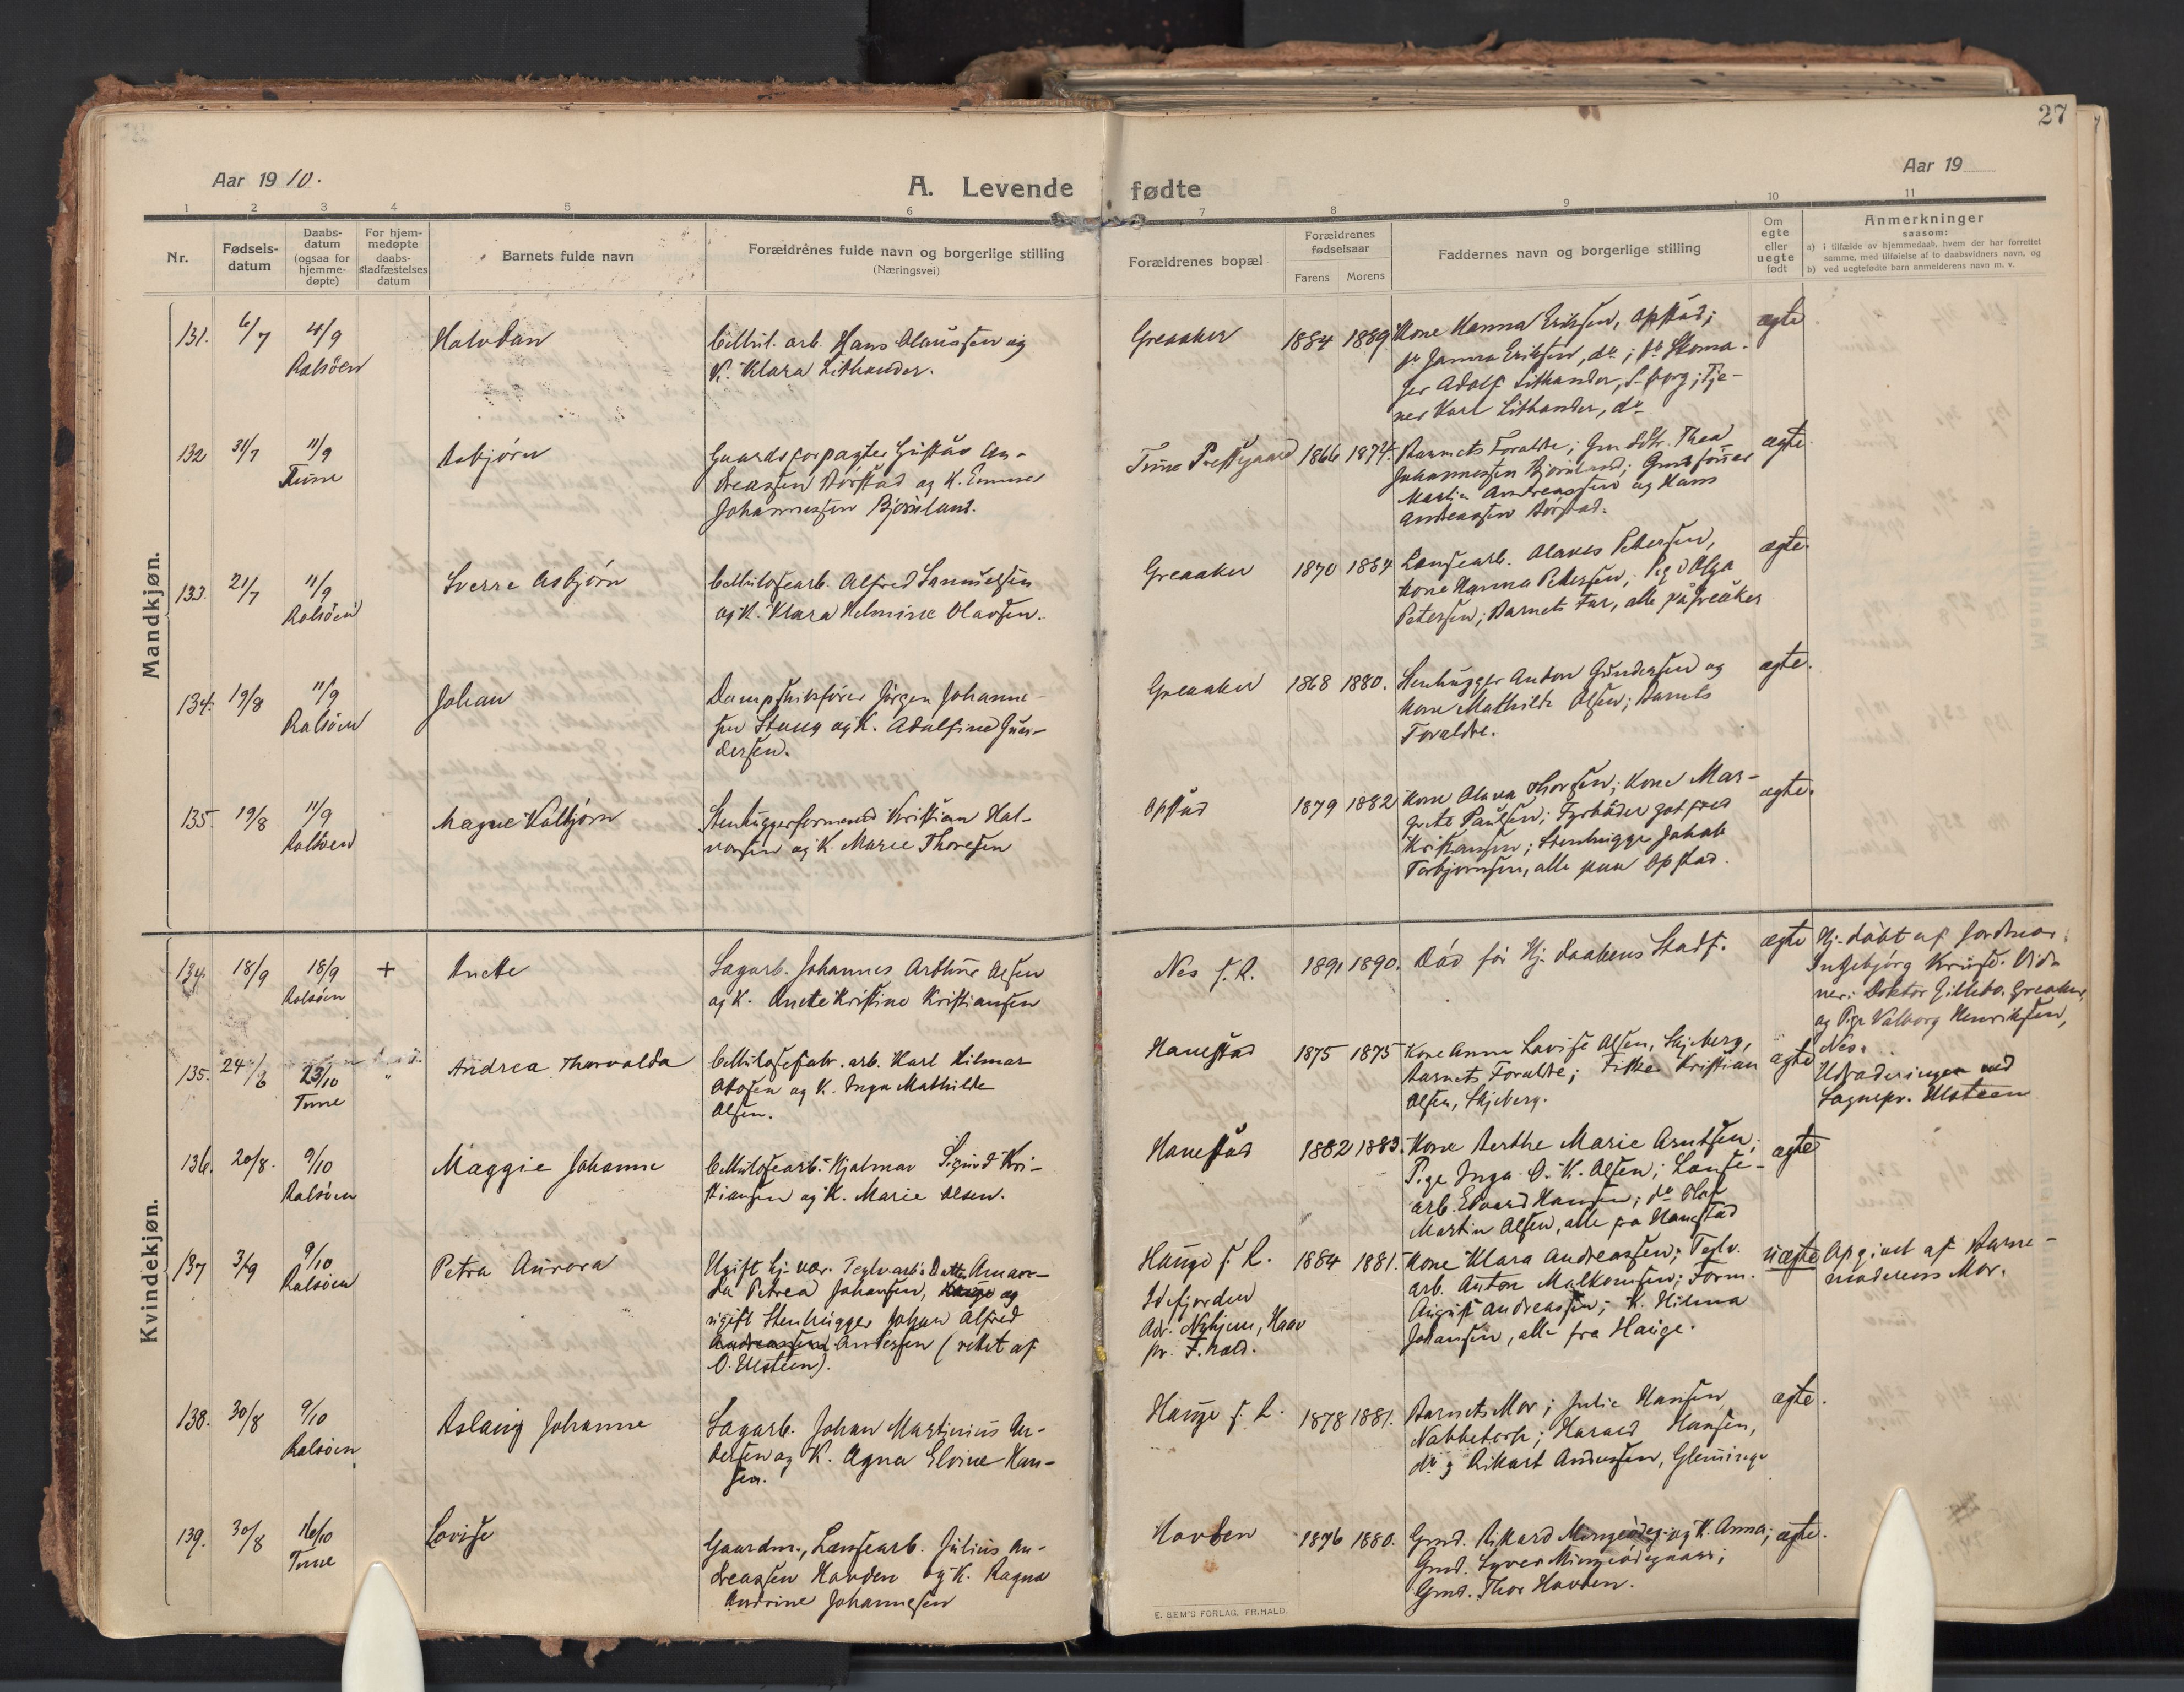 27
Aar 1910.
A. Levende fødte
Aar 19
1 2 3 4 5 6 7 8 9 10 11
Nr.
Fødsels-
datum
Daabs-
datum
(ogsaa for
hjemme-
døpte)
For hjem-
medøpte
daabs-
stadfæstelses
datum
Barnets fulde navn
Forældrenes fulde navn og borgerlige stilling
(Næringsvei)
Forældrenes bopæl
Forældrenes
fødselsaar
Farens Morens
Faddernes navn og borgerlige stilling
Om
egte
eller
uegte
født
Anmerkninger
saasom:
a) i tilfælde av hjemmedaab, hvem der har forrettet
samme, med tilføielse af to daabsvidners navn, og
b) ved uegtefødte barn anmelderens navn m. v.
Mandkjøn.
131. 6/7 4/9
Rolsöen
Halvdan
Cellul. arb. Hans Olaussen og
K. Klara Lithander.
Greaaker 1884 1889
Kone Hanna Eriksen, Opstad;
Adolf Lithander, S-borg; Tje-
ner Karl Lithander, do
ægte
132 31/7 11/9
Tune
Asbjörn
Gaardsforpagter Gustav An-
dreassen Borstad og K. Emma
Johannessen Björnland.
Tune Prestgaard 1866 1874.
Barnets Foraldre; Thea
Johannessen Björnland;
Martin Andreassen og Hans
Andreassen Borstad.
ægte
133. 21/7 11/9
Rolsöen
Sverre Asbjörn
Cellulosearb. Alfred Samuelsen
og K. Klara Helmine Olavsen.
Greaaker 1870 1884
Lensearb. Olaves Petersen,
kone Hanna Petersen; Olga
Petersen; Barnets Far, alle på Greåker
ægte.
134. 19/8 11/9
Rolsöen
Johan
Dampskibsförer Jörgen Johanne-
sen Stang og K. Adolfine Gun-
dersen.
Greaaker 1868 1880.
Stenhugger Anton Gundersen og
kone Mathilde Olsen; Barnets
Foraldre.
ægte.
135. 19/8 11/9
Rolsöen
Magne Kolbjörn
Stenhuggerformand Kristian Hal-
vorsen og K. Marie Thoresen
Opstad 1879 1882
Kone Olava Thorsen; Kone Mar-
grete Paulsen; Fyrböder Gotfred
Kristiansen; Stenhugger Jakob
Torbjörnsen, alle paa Opstad.
ægte.
Kvindekjøn.
134. 18/9 18/9 +
Rolsöen
Anette
Sagarb. Johannes Arthur Olsen
og K. Anete Kristine Kristiansen
Nes s. R. 1891 1890.
Död för Hj. daabens Stadf.
ægte
Hj. döbt af Jordmor
Ingebjörg Kruse. Vid-
ner: Doktor Gillebo, Greaaker,
og Pige Valborg Henriksen,
Nes.
135. 24/6 23/10 "
Tune
Andrea Thorvalda
Cellulosefabr. arb. Karl Hilmar
Ottosen og K. Inga Mathilde
Olsen.
Hanestad 1875 1875
Kone Anne Lovise Olsen, Skjeberg,
Barnets Foraldre; Fisker Kristian
Olsen, Skjeberg.
ægte
ved
Sognepr. Ulsteen
136. 20/8. 9/10
Rolsöen
Maggie Johanne
Cellulosearb. Hjalmar Sigurd Kri-
stiansen og K. Marie Olsen.
Hanestad 1882 1883.
Kone Berthe Marie Arntsen;
Pige Inga O. K. Olsen; Lense-
arb. Edvard Hansen; do Olaf
Martin Olsen, alle fra Hanestad
ægte
137 3/9 9/10
Rolsöen
Petra Aurora
Ugift hj. vær. Teglv.arb. Datter Aman-
da Petrea Johansen, og
ugift Stenhugger Johan Alfred
Andreassen Andersen (rettet af
O. Ulsteen).
Hauge s. R.
Idefjorden
Adr. Nyhjem,
pr. F.hald.
1884 1881.
Kone Klara Andreassen; Teglv.
arb. Anton Malkomsen; Form.
August Andreassen; K. Hilma
Johansen, alle fra Hauge.
uægte
Opgivet af Barne-
moderens Mor.
138. 30/8 9/10
Rolsöen
Aslaug Johanne
Sagarb. Johan Martinius An-
dersen og K. Agna Elvine Han-
sen.
Hauge s. R. 1878 1881.
Barnets Mor; Julie Hansen,
Nabbetorp; Harald Hansen,
do; Rikart Andersen, Glemminge
ægte.
139. 30/8 16/10
Tune
Lovise
Gaardm., Lensearb. Julius An-
dreassen Hovden og K. Ragna
Andrine Johannesen
Hovden 1876 1880.
Grmd. Rikard og K. Anna;
Grmd. Syver Mingeödegaard;
Grmd. Thor Hovden.
ægte.
E. SEM'S FORLAG. FR.HALD.